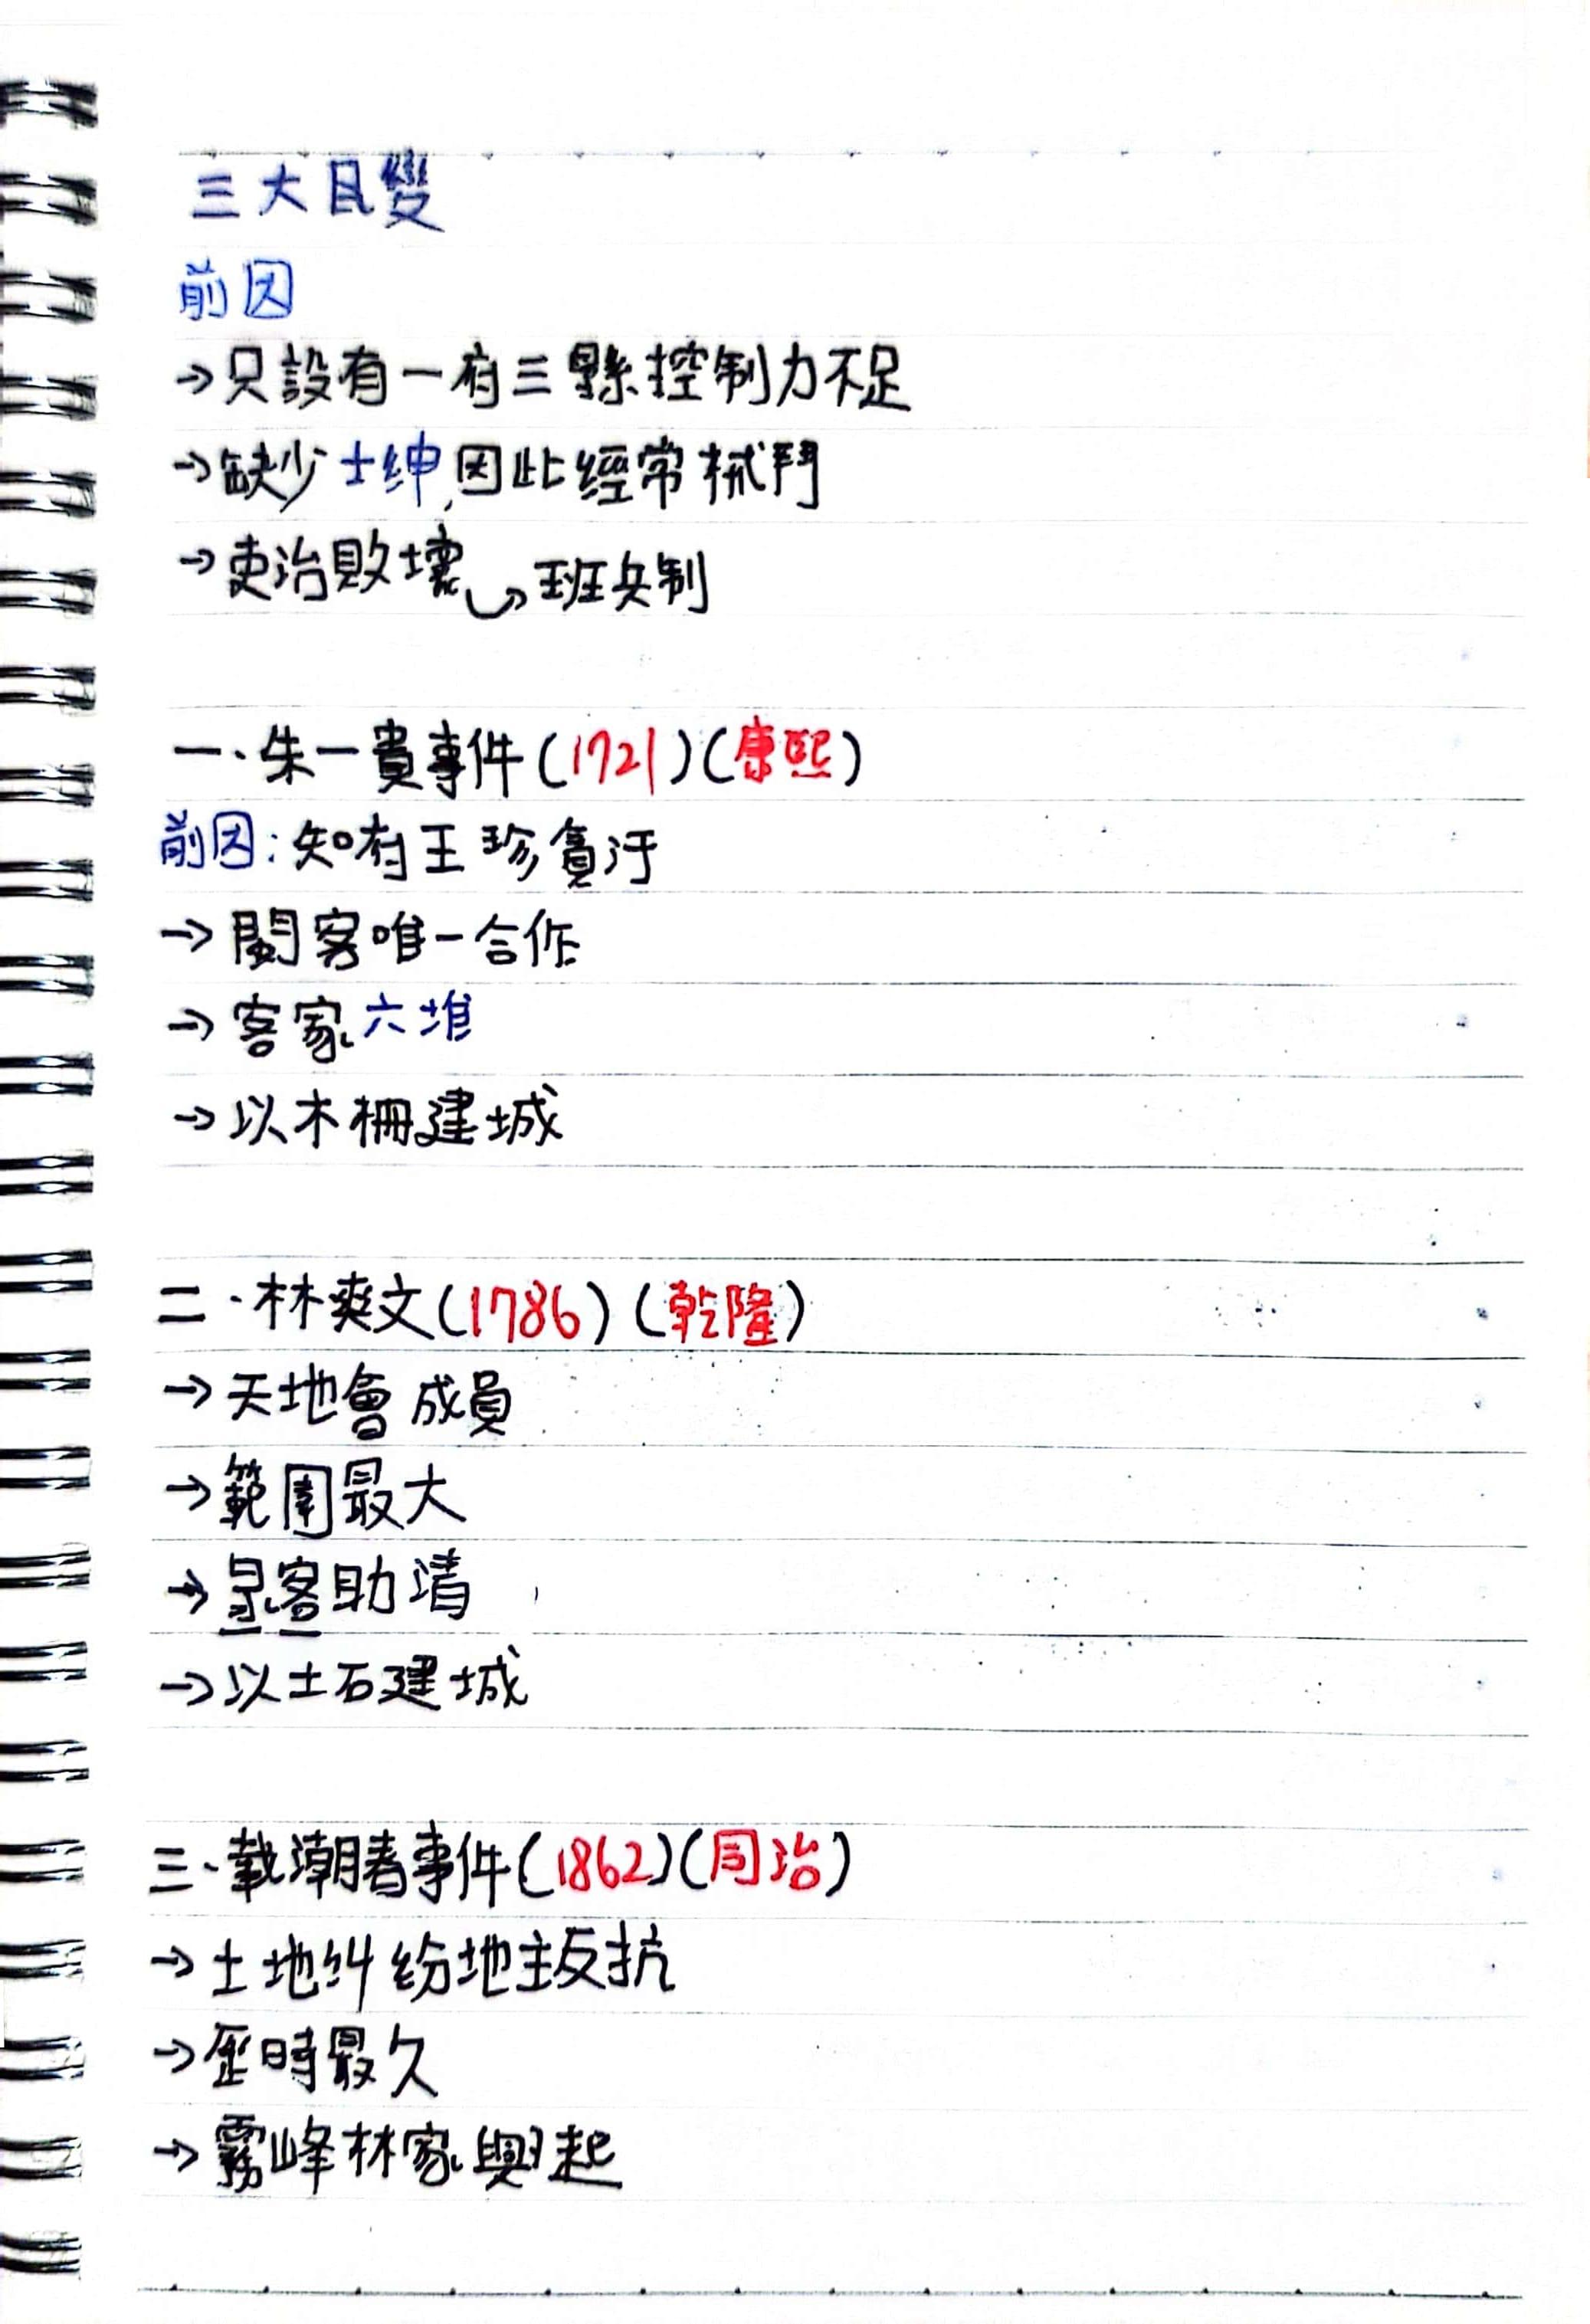 三大民變
前因
→只設有一府三縣控制力不足
→缺少士紳,因此經常械鬥
→吏治敗壞→班兵制
一、朱一貴事件(1721)(康熙)
前因:知府王珍貪汙
→閩客唯一合作
→客家六堆
→以木柵建城
二、林爽文(1786)(乾隆)
→天地會成員
→範圍最大
→泉客助清
→以土石建城
三、戴潮春事件(1862)(同治)
→土地糾紛地主反抗
→歷時最久
→霧峰林家興起